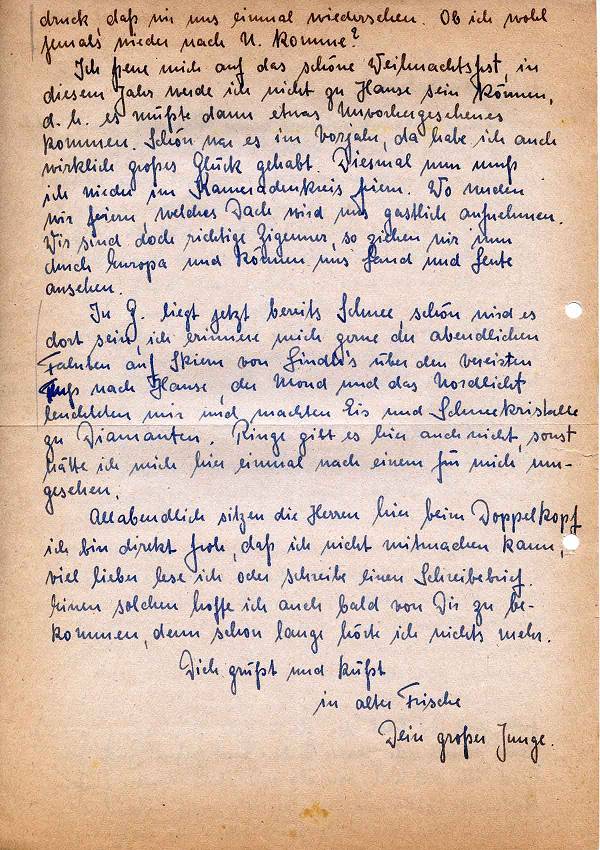 druck, daß wir uns einmal wiedersehen. Ob ich wohl
jemals wieder nach N. komme?
Ich freue mich auf das schöne Weihnachtsfest, in
diesem Jahr werde ich nicht zu Hause sein können,
d. h. es müßte dann etwas Unvorhergesehenes
kommen. Schön war es im Vorjahr, da habe ich auch
wirklich großes Glück gehabt. Diesmal nun muß
ich wieder im Kameradenkreis feiern. Wo werden
wir feiern, welches Dach wird uns gastlich aufnehmen.
Wir sind doch richtige Zigeuner, so ziehen wir nun
durch Europa und können uns Land und Leute
ansehen.
In G. liegt jetzt bereits Schnee, schön wird es
dort sein, ich erinnere mich gerne der abendlichen
Fahrten auf Skiern von Lindlo's über den vereisten
Fluß nach Hause, der Mond und das Nordlicht
leuchteten mir und machten Eis und Schneekristalle
zu Diamanten. Ringe gibt es hier auch nicht, sonst
hätte ich mich hier einmal nach einem für mich um-
gesehen.
Allabendlich sitzen die Herren hier beim Doppelkopf
ich bin direkt froh, daß ich nicht mitmachen kann,
viel lieber lese ich oder schreibe einen Schreibebrief.
Einen solchen hoffe ich auch bald von Dir zu be-
kommen, denn schon lange hörte ich nichts mehr.
Dich grüßt und küßt
in alter Frische
Dein großer Junge.